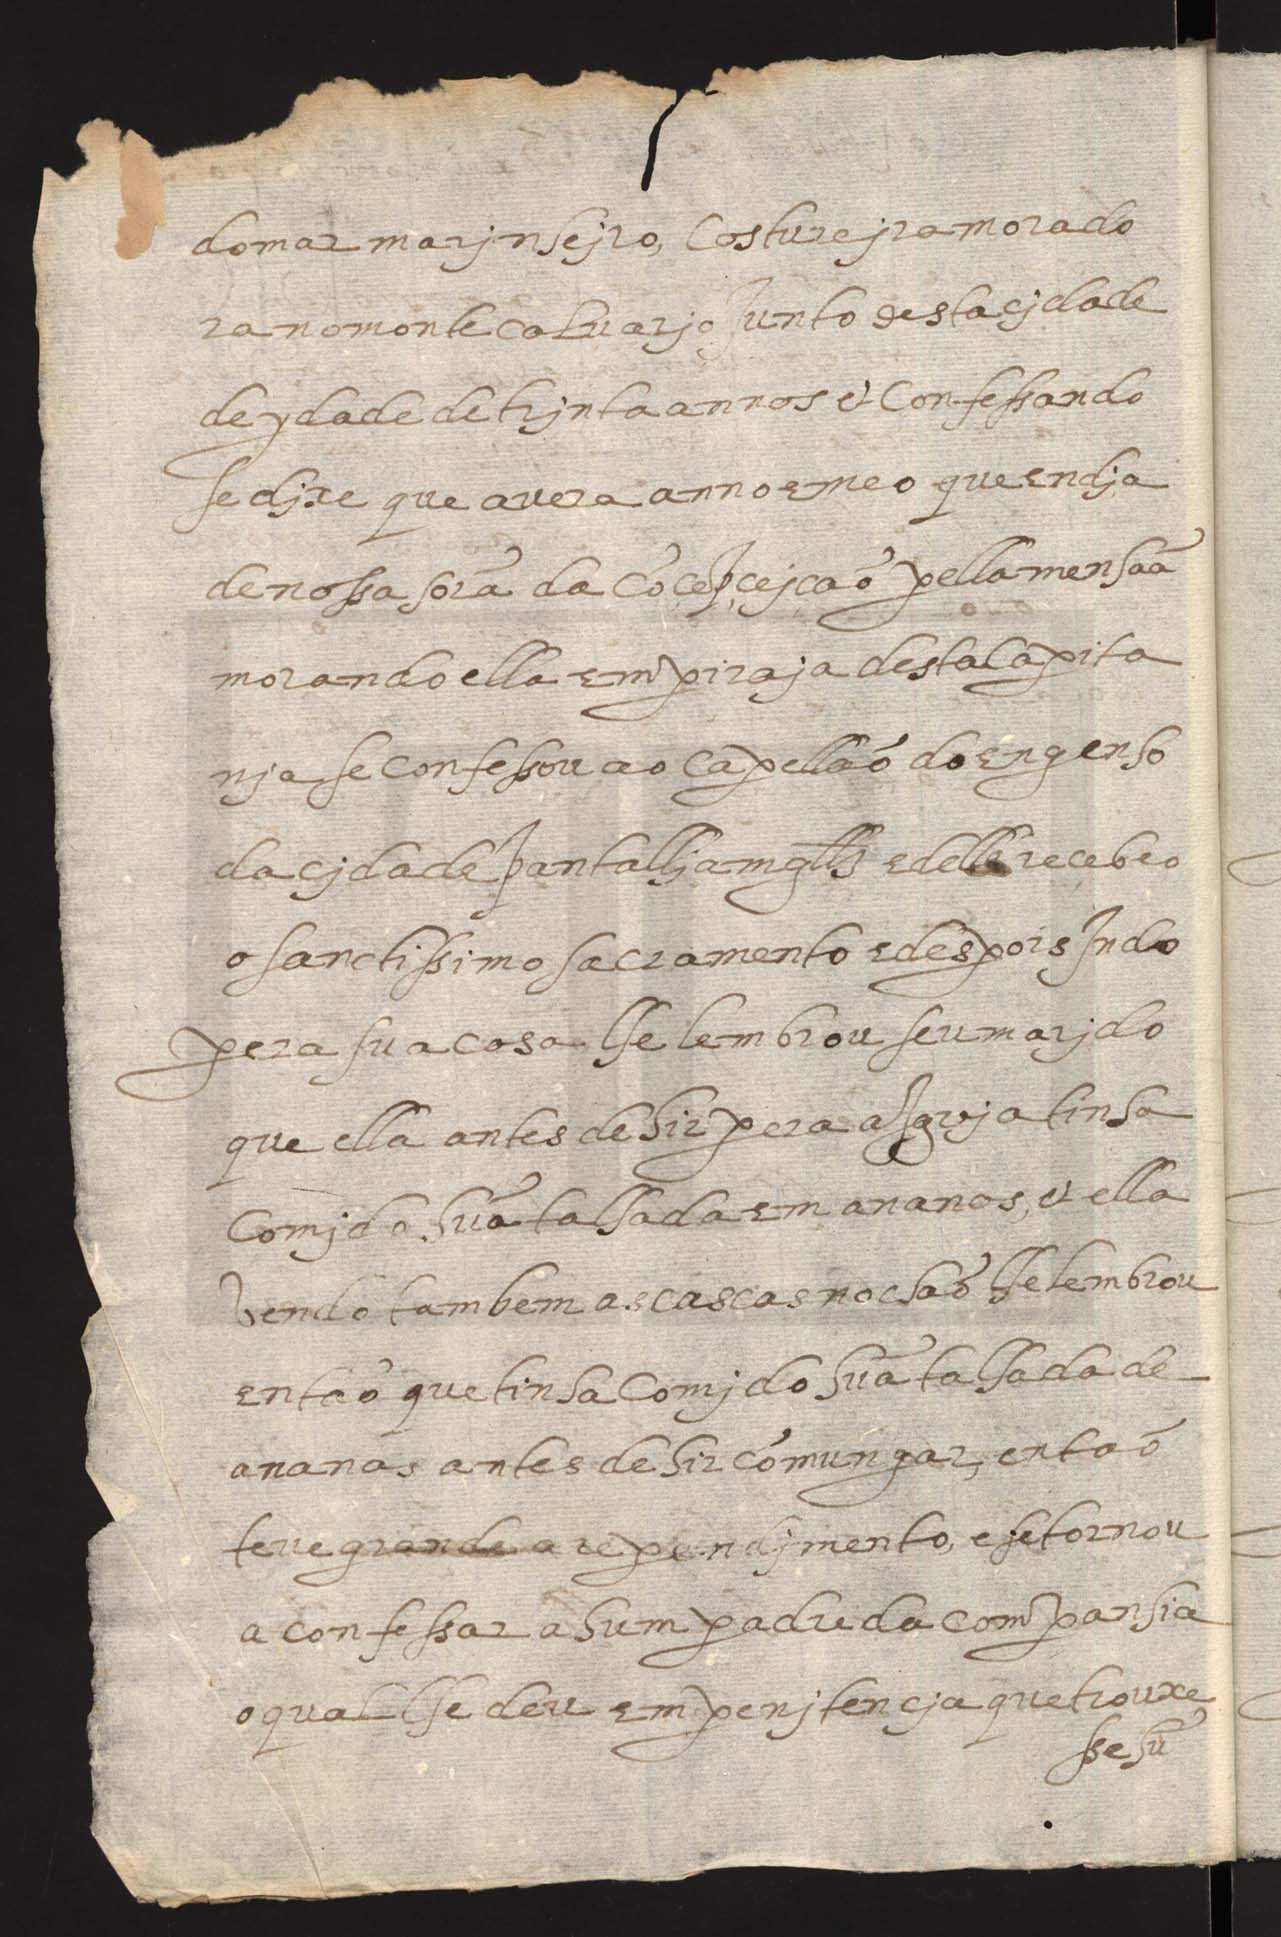 do mar marjnhejro, Costurejra morado
ra no monte caluarjo Junto desta cjdade
de ydade de trjnta annos & Confessando
se djxe que auera anno e meo que en dja
de nossa sorã da Cõcepçejcaõ pella menhaã
morando ella em piraja desta Capita
nja se confessou ao Capellaõ do engenho
da cjdade e delle recebeo
o sanctissimo sacramento e despois Indo
pera sua casa lhe lembrou seu marjdo
que ella antes de hir pera a Igreja tinha
Comjdo hũa talhada em ananas, & ella
Vendo tambem as cascas no chaõ lhe lembrou
entaõ que tinha Comjdo hũa talhada de
ananas antes de hir cõmungar, entaõ
teue grande arependjmento, e se tornou
a confessar a hum padre da companhia
o qual lhe deu em penjtencja que trouxe
sse hũ